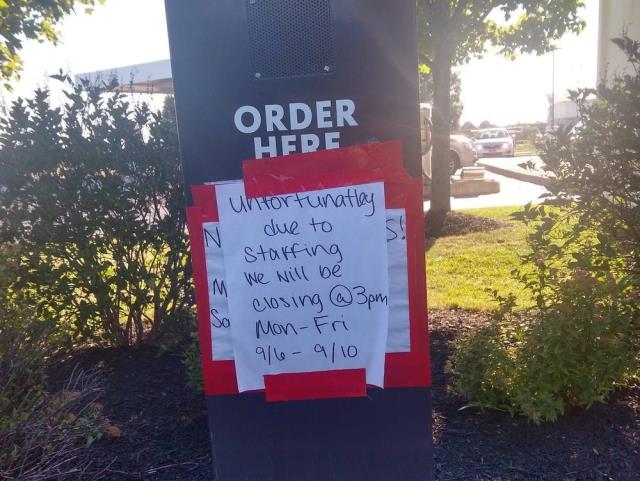 ORDER
HERE
Unfortunatley
due to
Staffing
we will be
closing @3pm
Mon-Fri
9/6 - 9/10
N
S!
M
So